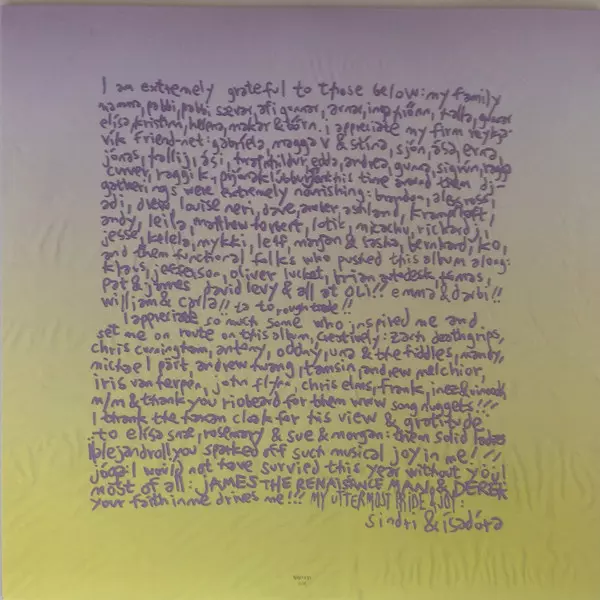 I am extremely grateful to those below: my family
mamma, pabbi, pabbi sævar, afi gunnar, arnar, inga hrönn, halla, gunnar
elísa, kristín, helena, makar & börn. i appreciate my firm reykja-
vík friend-net: gabríela, magga v & stína, sjón, ása, erna,
jónas, hallij, ási, hildur, edda, andrea, gunna, sigrún, ragga
cuvver, raggi k, this time around them dj-
gatherings were extremely nourishing: brandon, alex ross,
adi, drew, louise neri, dave, amber, ashland, krampfhaft,
andy, leila, matthew herbert, lotic, micachu, rickard j,
jesse, kelela, mykki, leif, marjan & sasha, bernhard, ko,
and them functional folks who pushed this album along:
klaus, jefferson, oliver lucket, brian autodesk, tomas,
pat & james david levy & all at OLI!! emma & darbi!!
william & carla!! ta to rough trade!!
I appreciate so much some who inspired me and
set me on route on this album, creatively: zach deathgrips,
chris cunningham, antony, oddný, una & the fiddles, mandy,
michael j pärt, andrew huang, tamsin, andrew melchior,
iris van herpen, john flynn, chris elms, frank, inez & vinoodh
m/m & thank you rioheard for them www song nuggets!!!
I thank the hawk for his view & gratitude
to elísa snæ, rosemary & sue & morgan: them solid ladies
alejandro!! you sparked off such musical joy in me!!
jóga: I would not have survied this year without you!
most of all: JAMES THE RENAISANCE MAN & DEREK
your faith in me drives me!!! MY UTTERMOST PRIDE & JOY:
sindri & ísadóra